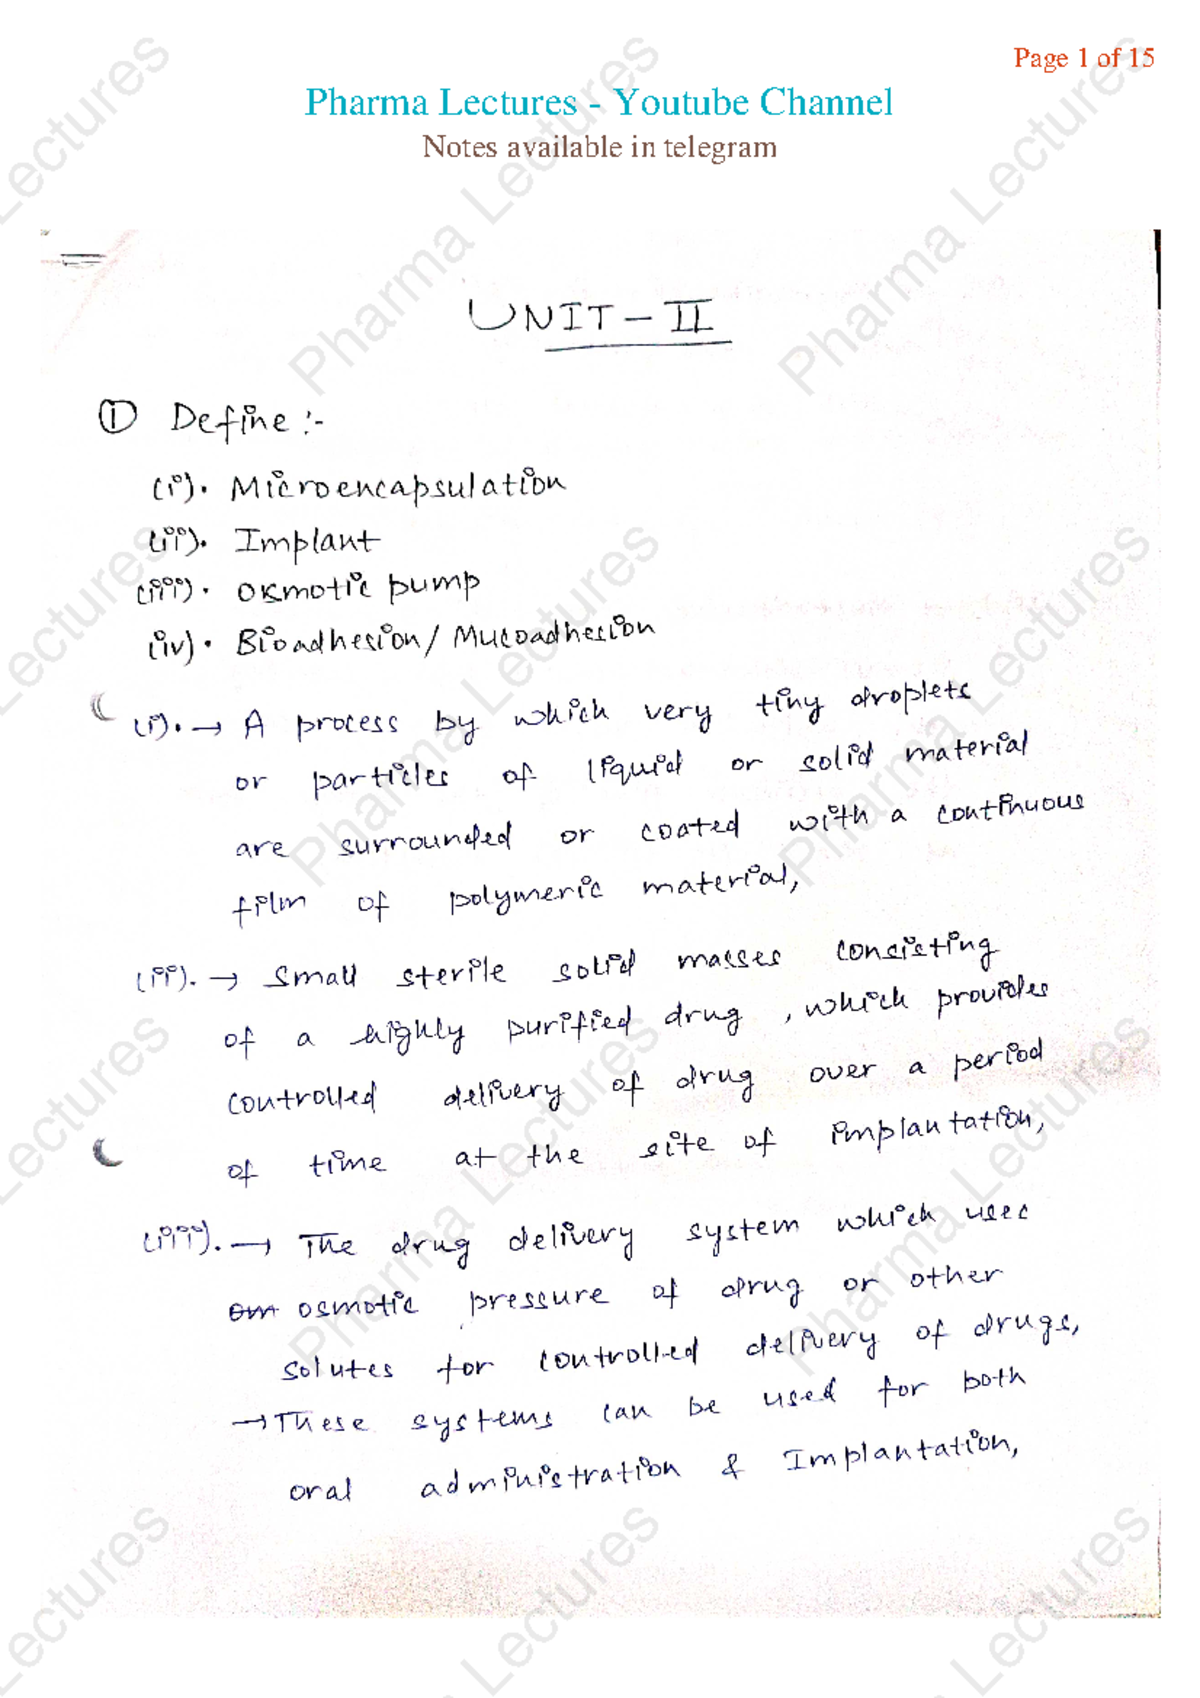 Page 1 of 15
Pharma Lectures - Youtube Channel
Notes available in telegram
UNIT - II
① Define :-
(i). Microencapsulation
(ii). Implant
(iii). osmotic pump
(iv). Bioadhesion / Mucoadhesion
(i). → A process by which very tiny droplets
or particles of liquid or solid material
are surrounded or coated with a continuous
film of polymeric material,
(ii). → small sterile solid masses consisting
of a highly purified drug, which provides
controlled delivery of drug over a period
of time at the site of implantation,
(iii). → The drug delivery system which uses
om osmotic pressure of drug or other
solutes for controlled delivery of drugs,
→ These systems can be used for both
oral administration & Implantation,
Pharma Lectures